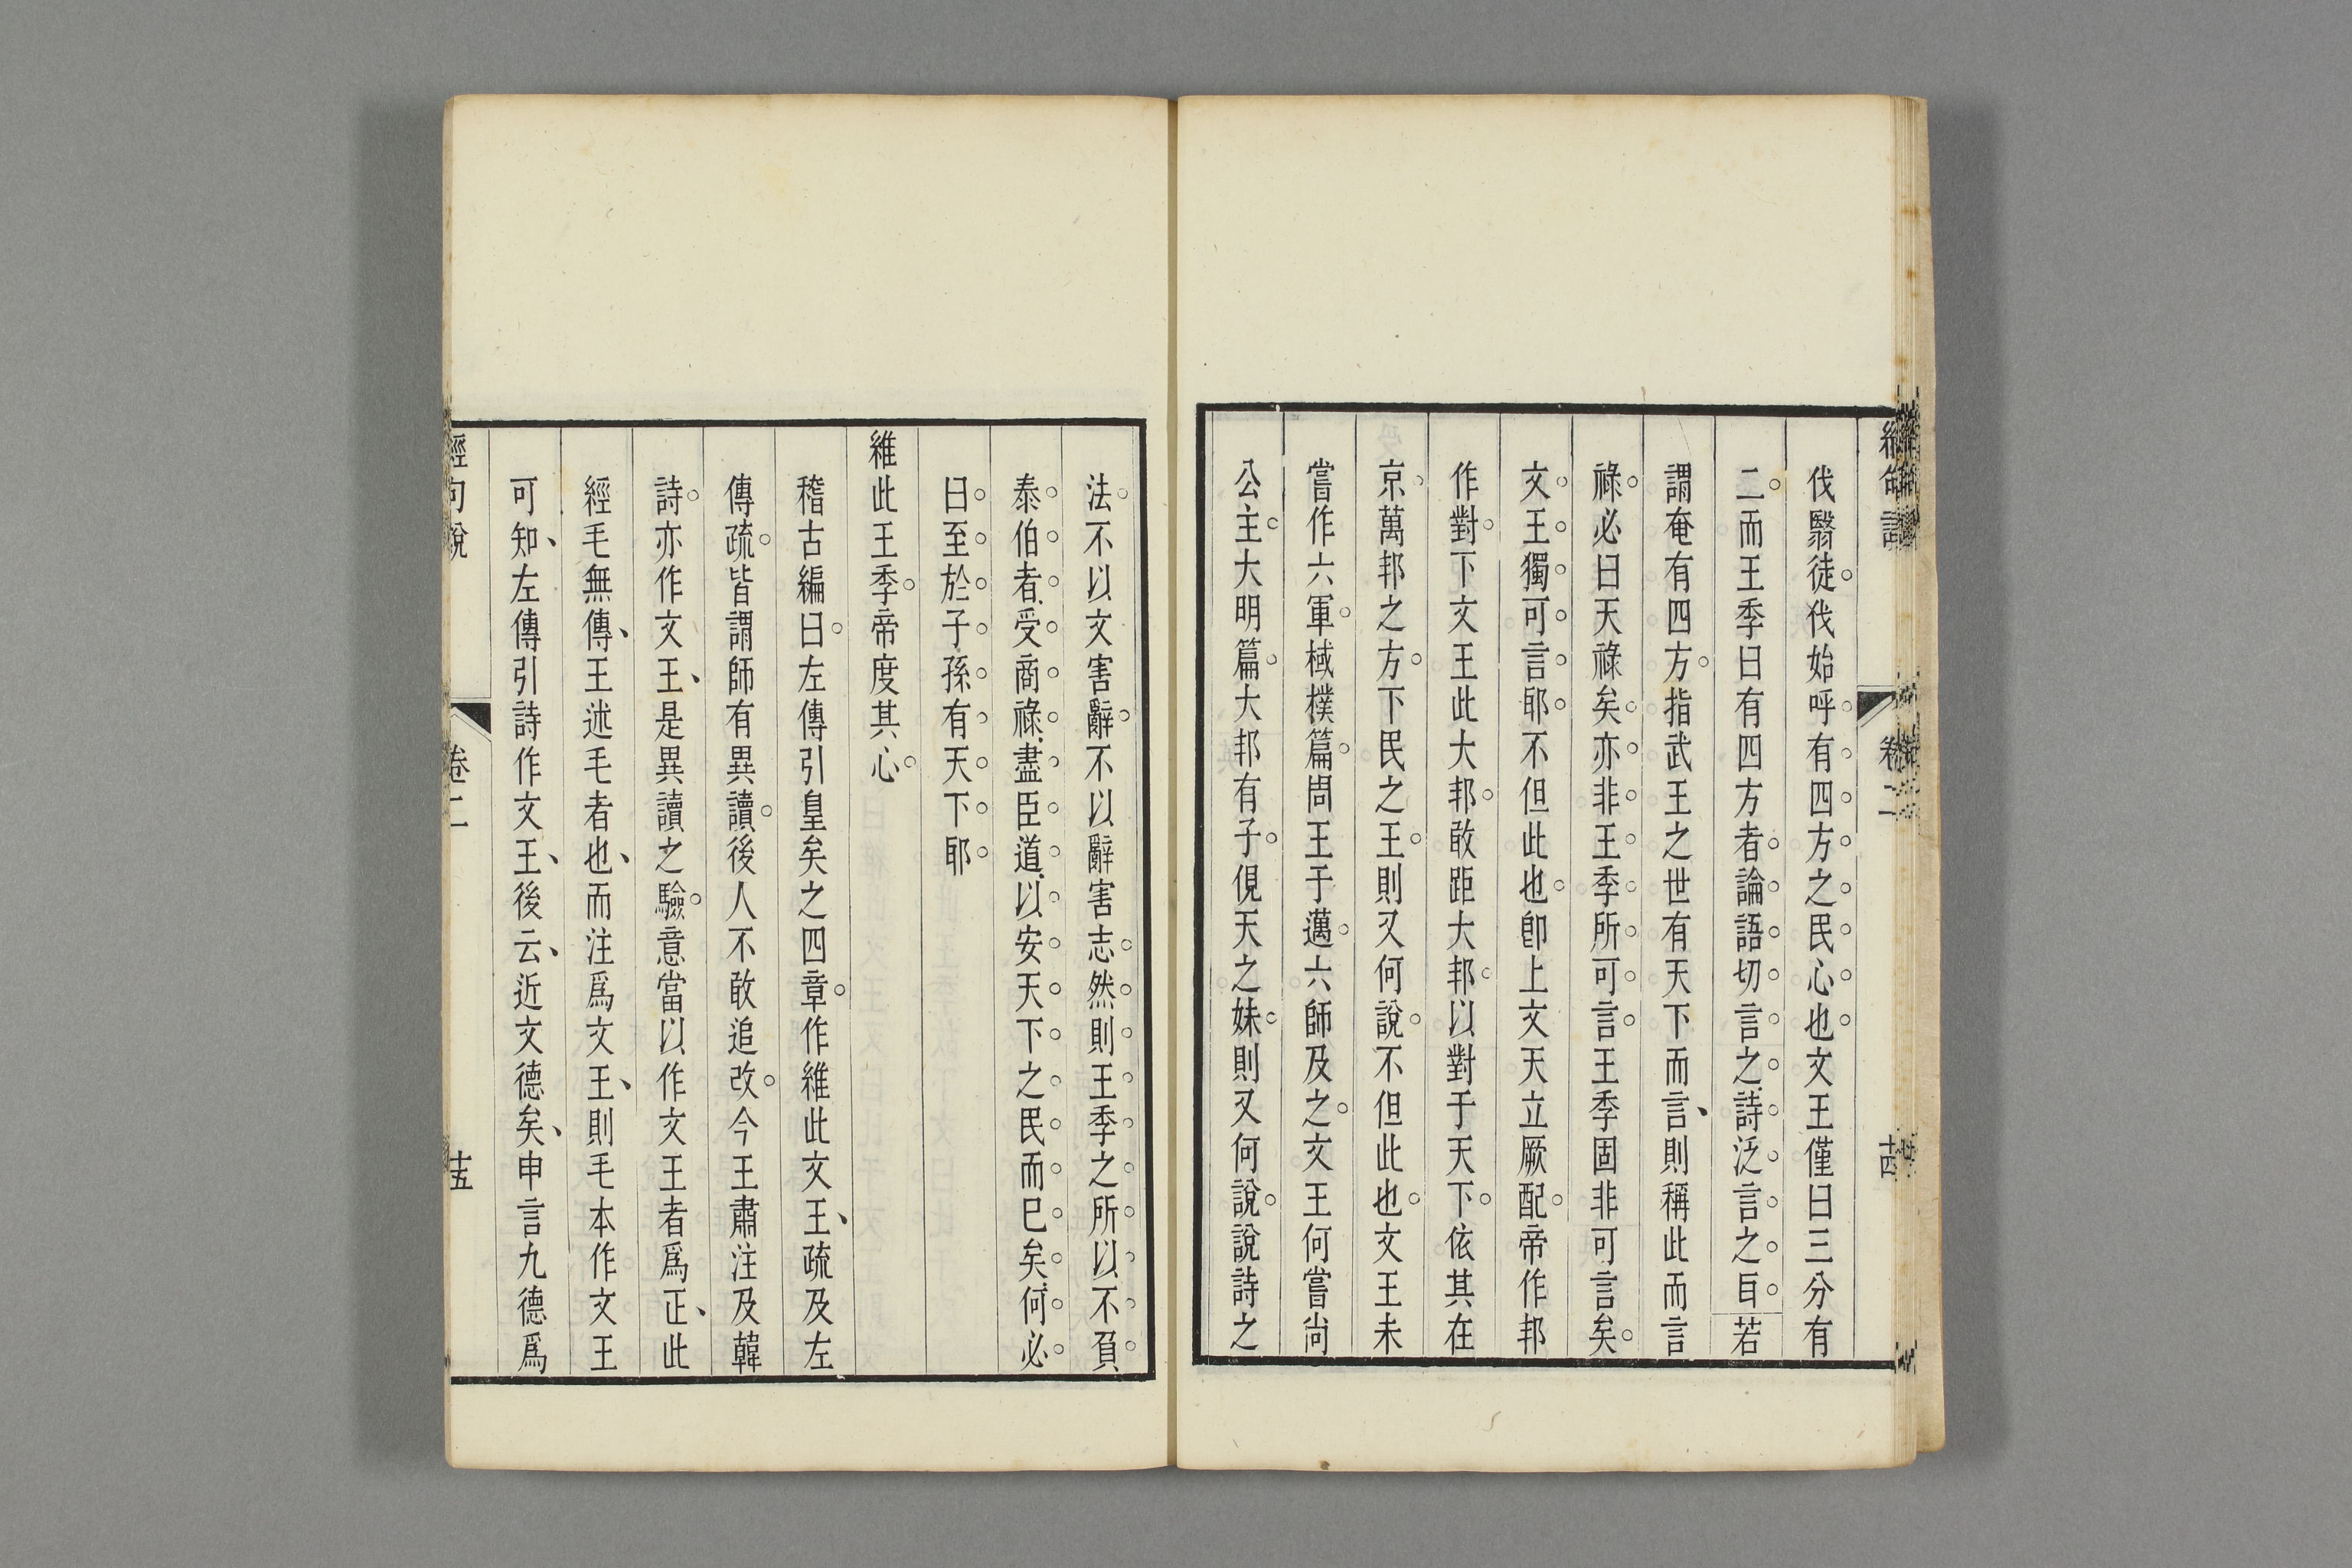 伐翳徒伐始呼有四方之民心也文王僅曰三分有
二而王季曰有四方者論語切言之詩泛言之𦣞若
謂奄有四方指武王之世有天下而言則稱此而言
祿必曰天祿矣亦非王季所可言王季固非可言矣
文王獨可言耶不但此也卽上文天立厥配帝作邦
作對下文王此大邦敢距大邦以對于天下依其在
京萬邦之方下民之王則又何說不但此也文王未
嘗作六軍棫樸篇周王于邁六師及之文王何嘗尚
公主大明篇大邦有子俔天之妹則又何說說詩之
法不以文害辭不以辭害志然則王季之所以不負
泰伯者受商祿盡臣道以安天下之民而已矣何必
曰至於子孫有天下耶
維此王季帝度其心
稽古編曰左傳引皇矣之四章作維此文王疏及左
傳疏皆謂師有異讀後人不敢追改今王肅注及韓
詩亦作文王是異讀之驗意當以作文王者爲正此
經毛無傳王述毛者也而注爲文王則毛本作文王
可知左傳引詩作文王後云近文德矣申言九德爲
經句說 卷二 十五